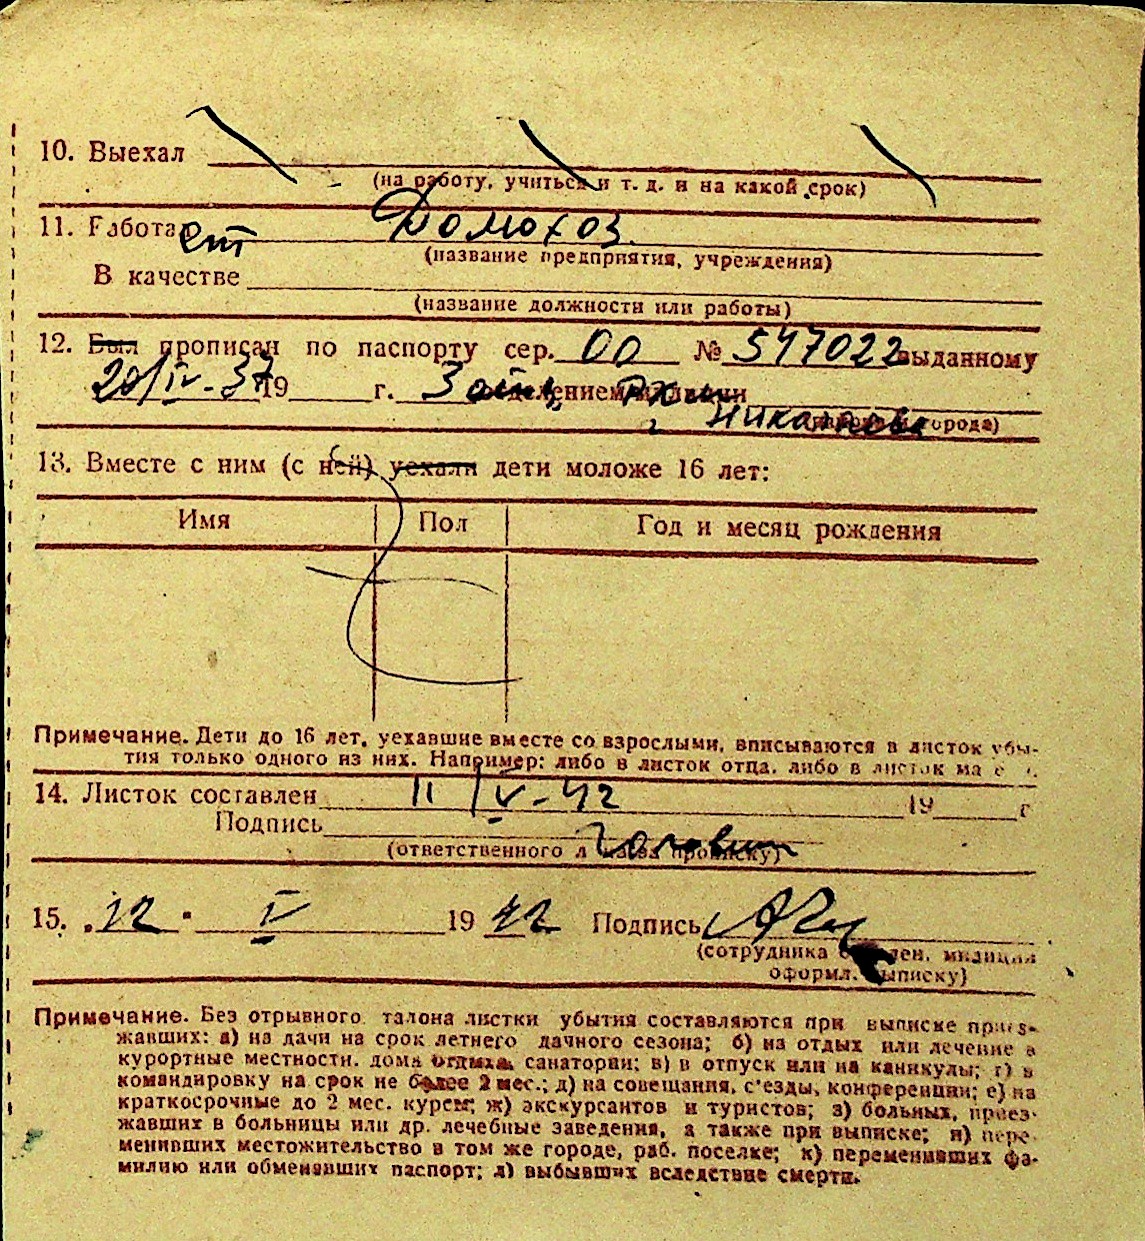 10. Выехал
(на работу, учиться и т. д. и на какой срок)
11. Работает Домохоз.
(название предприятия, учреждения)
В качестве
(название должности или работы)
12. Был прописан по паспорту сер. 00 № 547022 выданному
20/IV-37 19 г. 3 отделением милиции
г. Николаева
города)
13. Вместе с ним (с ней) уехали дети моложе 16 лет:
Имя Пол Год и месяц рождения
Примечание. Дети до 16 лет, уехавшие вместе со взрослыми, вписываются в листок убы-
тия только одного из них. Например: либо в листок отца, либо в листок ма
14. Листок составлен 11/V-42 19 г
Подпись
(ответственного за прописку)
15. „12" V 1942 Подпись
(сотрудника отделен. милиции
оформл. выписку)
Примечание. Без отрывного талона листки убытия составляются при выписке приез-
жавших: а) на дачи на срок летнего дачного сезона; б) на отдых или лечение в
курортные местности, дома отдыха, санатории; в) в отпуск или на каникулы; г) в
командировку на срок не более 2 мес.; д) на совещания, с'езды, конференции; е) на
краткосрочные до 2 мес. курсы; ж) экскурсантов и туристов; з) больных, приез-
жавших в больницы или др. лечебные заведения, а также при выписке; и) пере-
менивших местожительство в том же городе, раб. поселке; к) переменивших фа-
милию или обменявших паспорт; л) выбывших вследствие смерти.